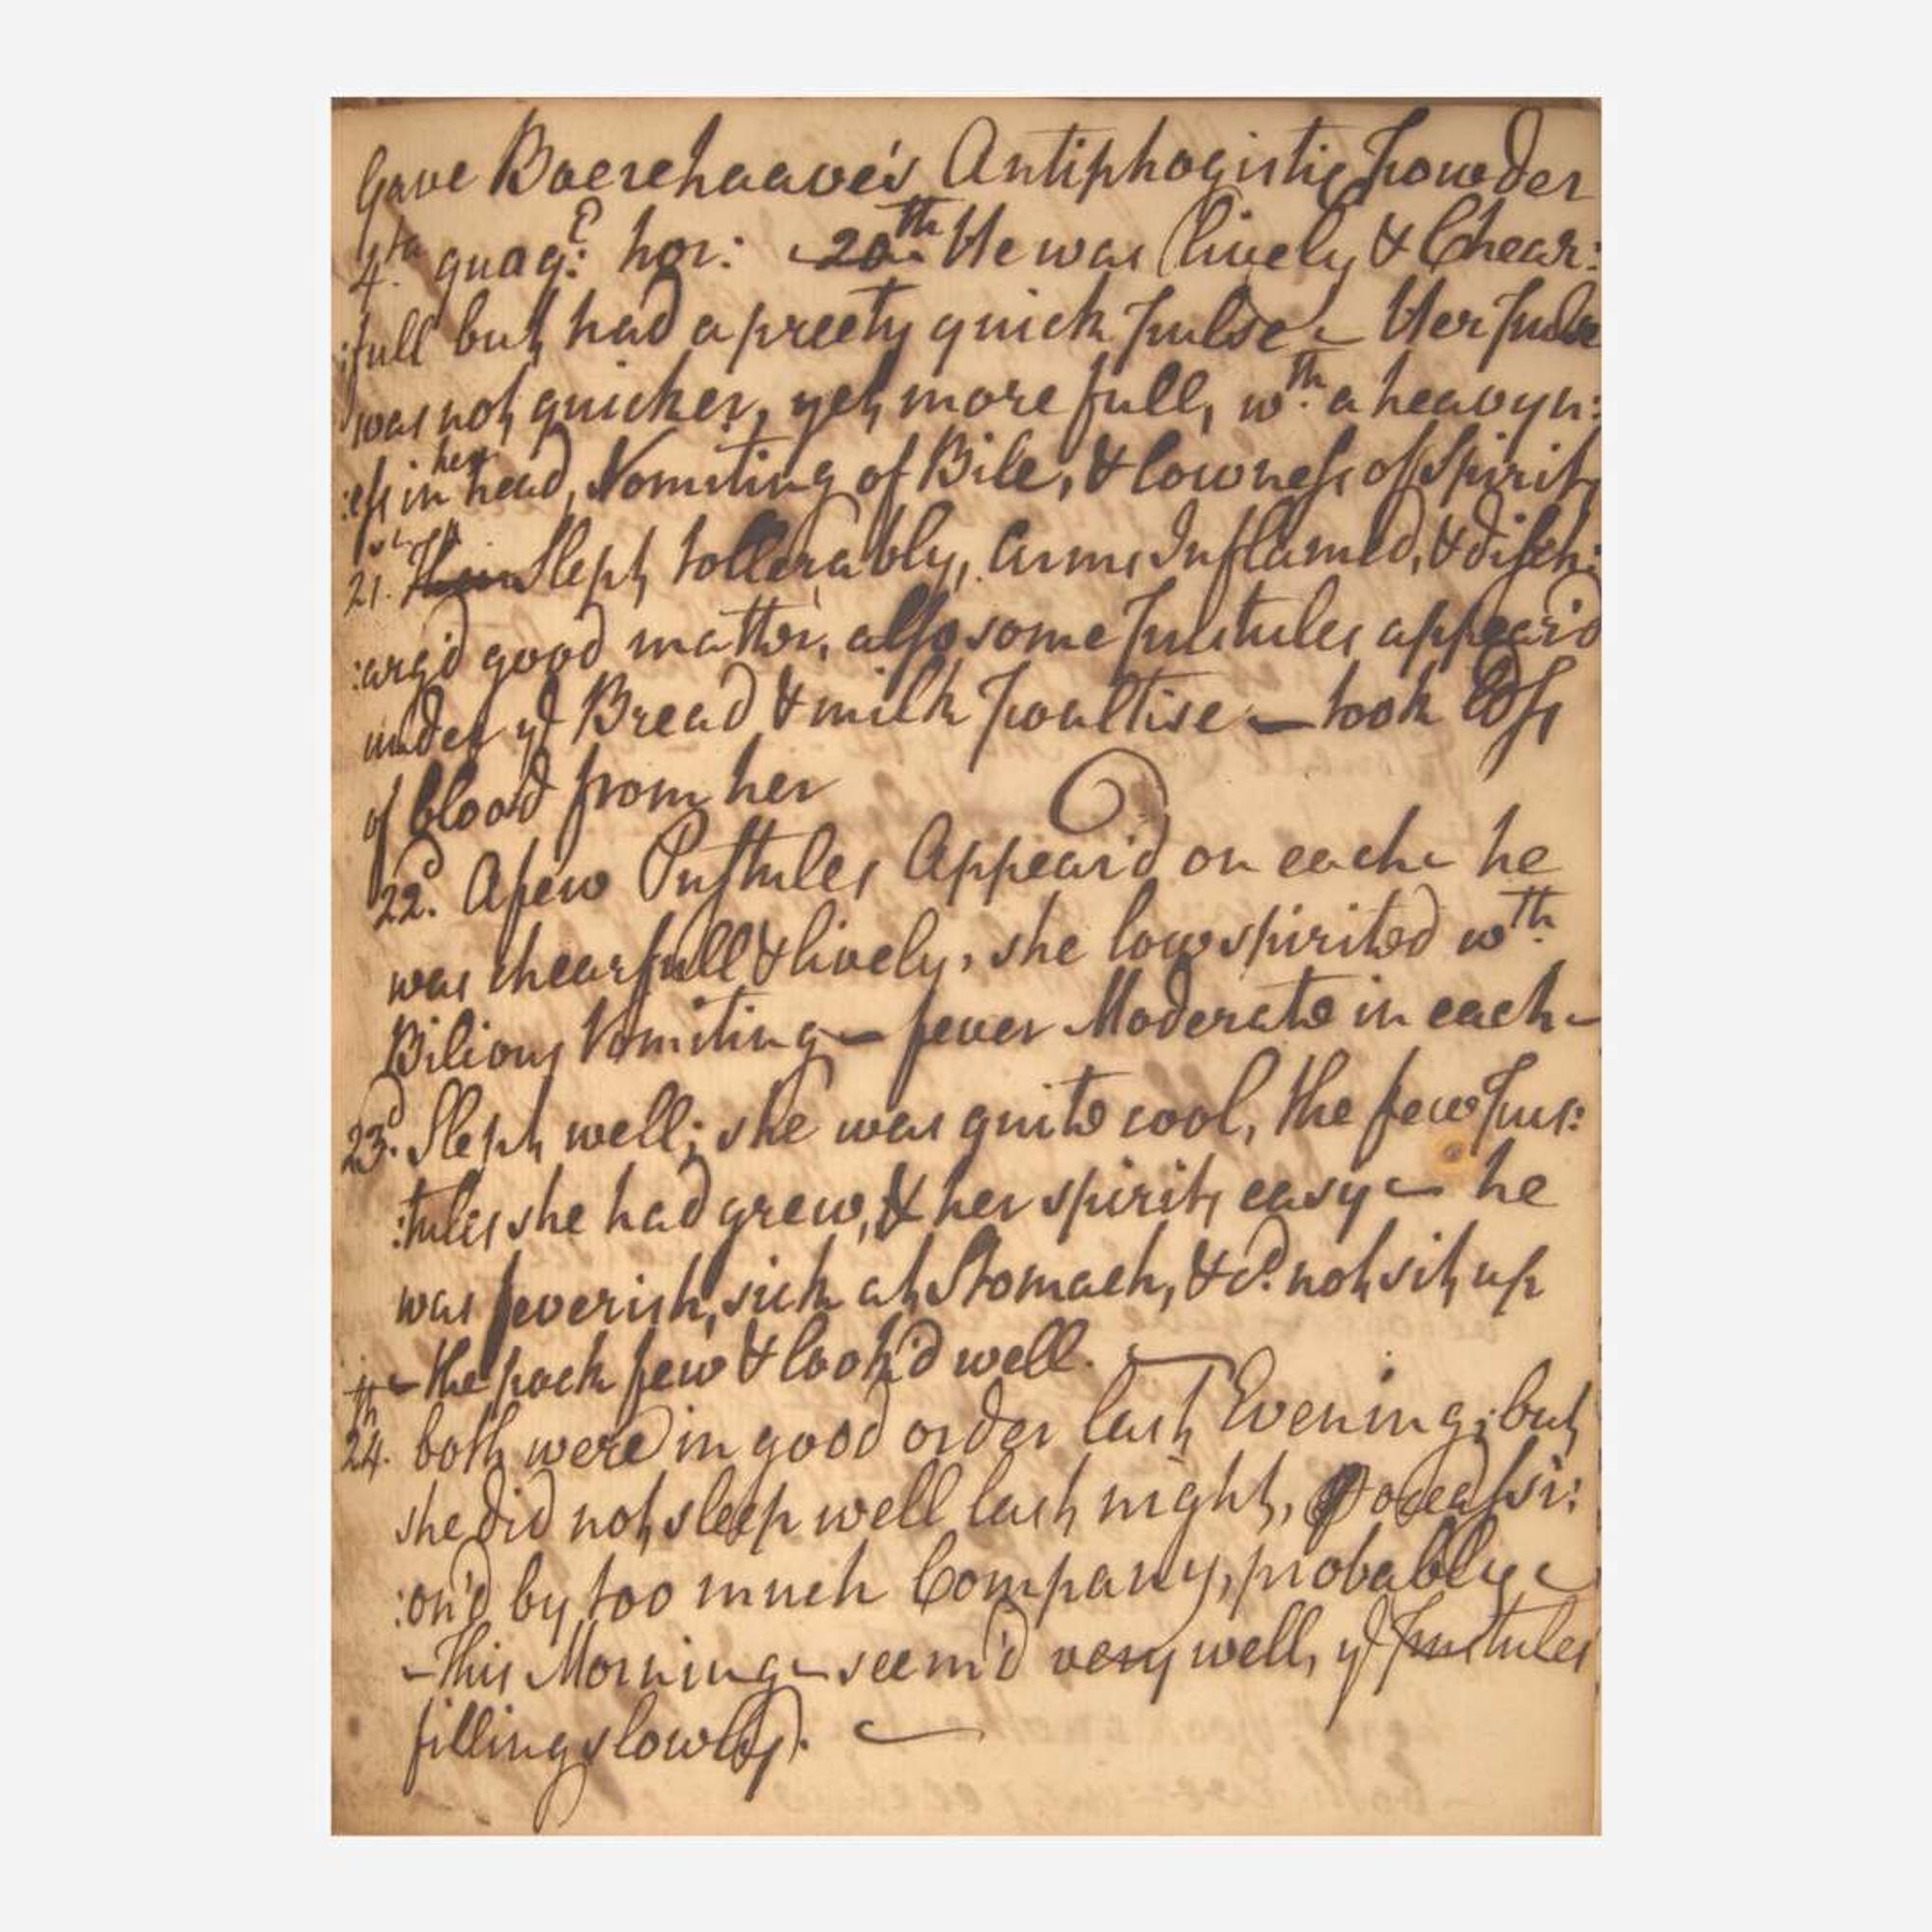 Gave Boerehaave's Antiphogistic powder
4ta quaq: hor: 20th He was lively & Chear:
:full but had a preety quick pulse - Her pulse
was not quicker, yet more full, wth a heavyn:
:ess in her head, Vomiting of Bile, & lowness of Spirits
21. Slept tollerably, arms Inflamed, & disch:
:arg'd good matter, also some pustules appear'd
under ye Bread & milk poultise - took
of blood from her
22d. A few Pustules Appear'd on each - he
was chearfull & lively, she low spirited wth
Bilious Vomiting - fever Moderate in each -
23d. Slept well; she was quite cool, the few pus:
:tules she had grew, & her spirits easy - he
was feverish, sick at Stomach, & cd. not sit up
- the pock few & look'd well. -
24th. both were in good order last Evening; but
she did not sleep well last night, occassi:
:on'd by too much Company, probably -
- This Morning - seem'd very well, ye pustules
filling slowly. -